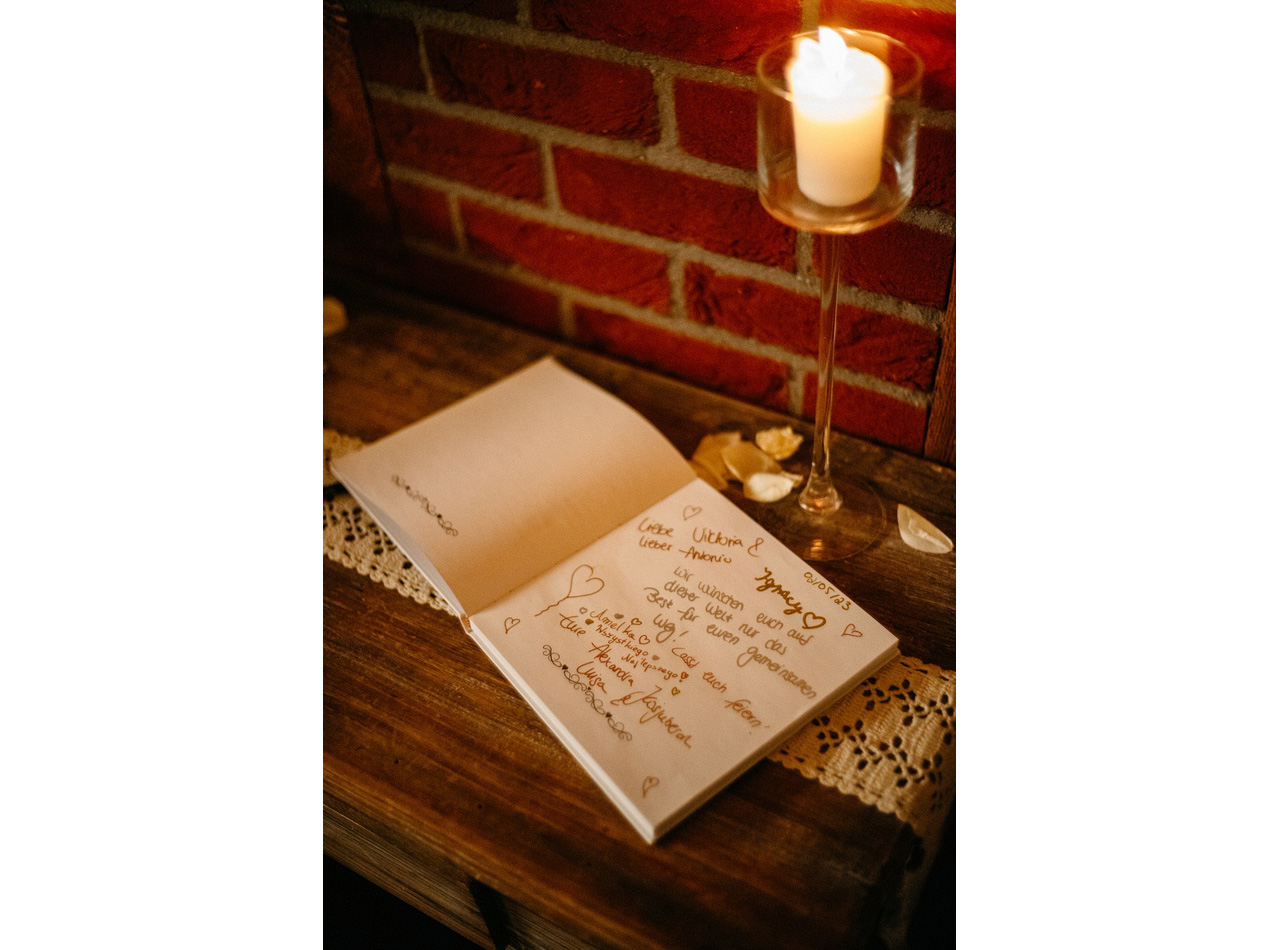 Liebe Viktoria &
Lieber Antonio
06/05/23
Ignacy
wir wünschen euch auf
dieser Welt nur das
Best für euren gemeinsamen
Weg! Lasst euch feiern!
Anielka
Wszystkiego
Najlepszego
Eure Alexandra
Luisa &